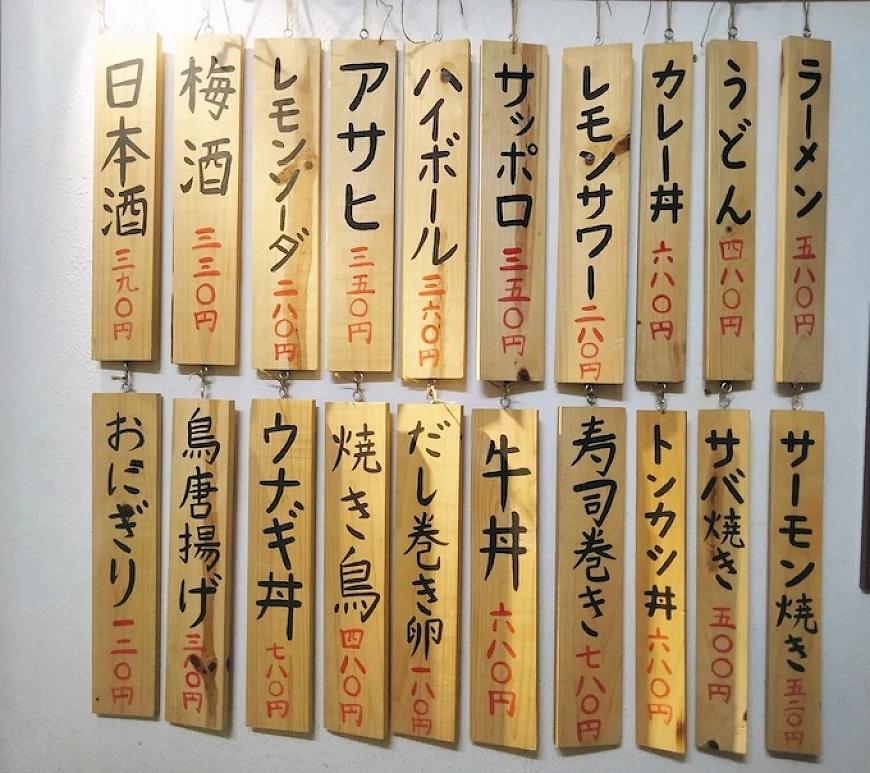 ラーメン 五八〇円
うどん 四八〇円
カレー丼 六八〇円
レモンサワー 二八〇円
サッポロ 三五〇円
ハイボール 三六〇円
アサヒ 三五〇円
レモンソーダ 二八〇円
梅酒 三三〇円
日本酒 三九〇円
サーモン焼き 五二〇円
サバ焼き 五〇〇円
トンカシ丼 六八〇円
寿司巻き 七八〇円
牛丼 六八〇円
だし巻き卵 一八〇円
焼き鳥 四八〇円
ウナギ丼 七八〇円
鳥唐揚げ 三八〇円
おにぎり 一二〇円